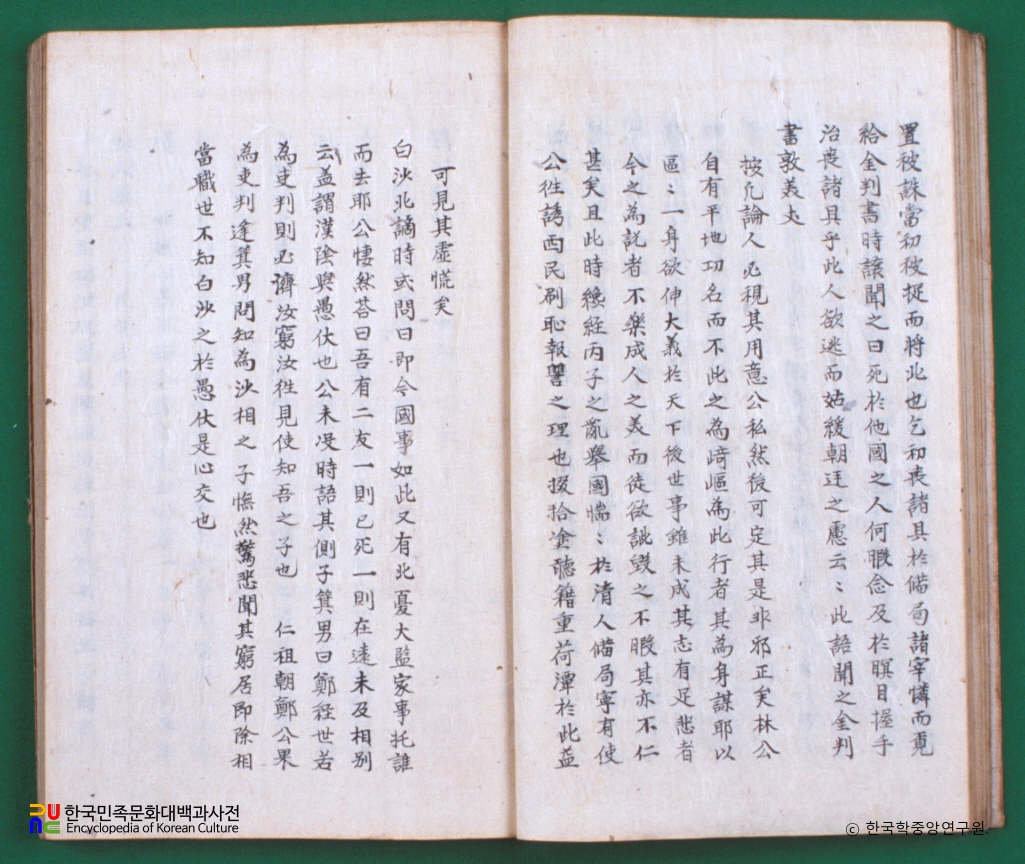 置被誅當初被捉而將北也乞初丧諸具於備局諸宰憐而覔
給金判書時讓聞之曰死於他國之人何暇念及於瞑目握手
治丧諸具乎此人欲逃而姑緩朝廷之慮云〻此語聞之金判
書敦義夫
按凡論人必視其用意公私然後可定其是非邪正矣林公
自有平地功名而不此之為﨑嶇為此行者其為身謀耶以
區〻一身欲伸大義於天下後世事雖未成其志有足悲者
今之為說者不樂成人之美而徒欲訿毀之不暇其亦不仁
甚矣且此時纔経丙子之亂舉國惴〻於清人備局寧有使
公徃誘西民刷恥報讐之理也掇拾塗聽籍重荷潭於此益
可見其虛慌矣
白沙北謫時或問曰即今國事如此又有此憂大監家事托誰
而去耶公悽然荅曰吾有二友一則已死一則在遠未及相别
云盖謂漢陰與愚伏也公未沒時語其側子箕男曰鄭経世若
為吏判則必濟汝窮汝徃見使知吾之子也 仁祖朝鄭公果
為吏判逢箕男問知為沙相之子憮然驚悲聞其窮居即除相
當職世不知白沙之於愚伏是心交也
한국민족문화대백과사전
Encyclopedia of Korean Culture
© 한국학중앙연구원.